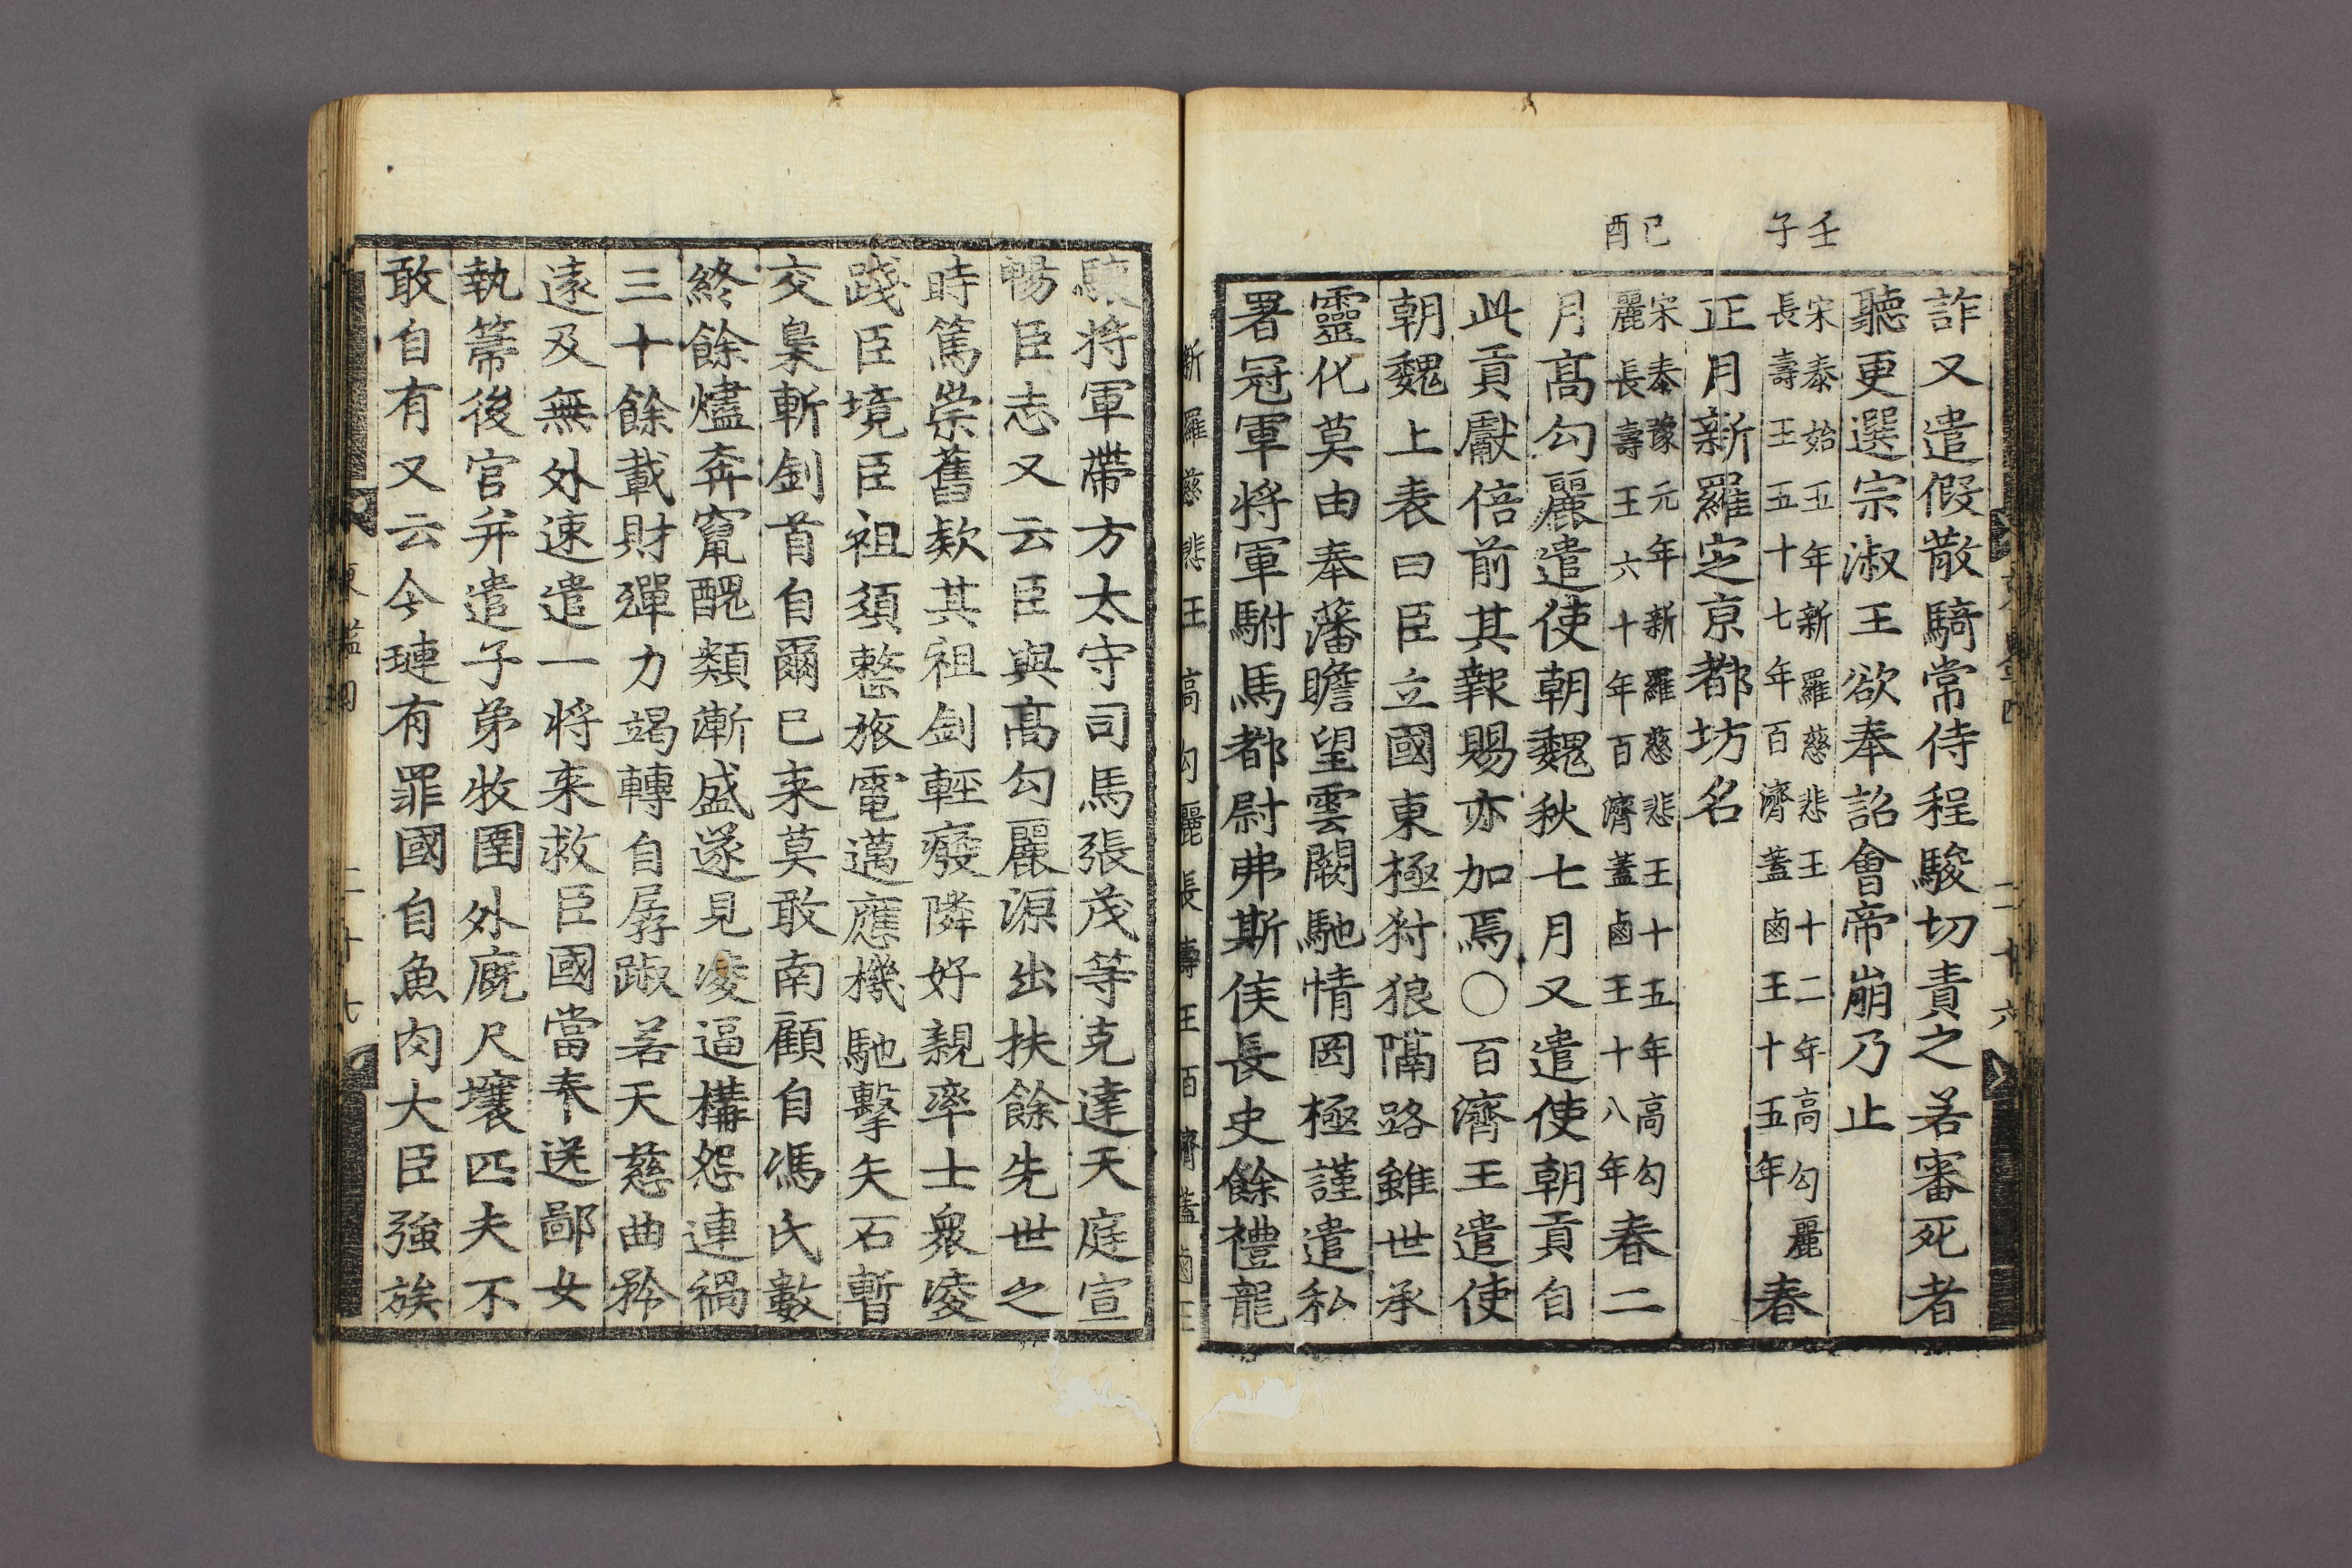 壬子
己酉
詐又遣假散騎常侍程駿切責之若審死者
聽更選宗淑王欲奉詔會帝崩乃止
宋泰始五年新羅慈悲王十二年高勾麗
長壽王五十七年百濟蓋鹵王十五年
春
正月新羅定京都坊名
宋泰豫元年新羅慈悲王十五年高勾
麗長壽王六十年百濟蓋鹵王十八年
春二
月高勾麗遣使朝魏秋七月又遣使朝貢自
此貢獻倍前其報賜亦加焉○百濟王遣使
朝魏上表曰臣立國東極犲狼隔路雖世承
靈化莫由奉藩瞻望雲闕馳情罔極謹遣私
署冠軍將軍駙馬都尉弗斯侯長史餘禮龍
新羅慈悲王 高勾麗長壽王百濟蓋鹵王
驤將軍帶方太守司馬張茂等克達天庭宣
暢臣志又云臣與高勾麗源出扶餘先世之
時篤崇舊欵其祖釗輕廢隣好親率士衆凌
踐臣境臣祖須整旅電邁應機馳擊矢石暫
交梟斬釗首自爾已来莫敢南顧自馮氏數
終餘燼奔竄醜類漸盛遂見凌逼構怨連禍
三十餘載財殫力竭轉自孱踧若天慈曲矜
遠及無外速遣一將来救臣國當奉送鄙女
執箒後宮并遣子弟牧圉外廐尺壤匹夫不
敢自有又云今璉有罪國自魚肉大臣強族
二十七